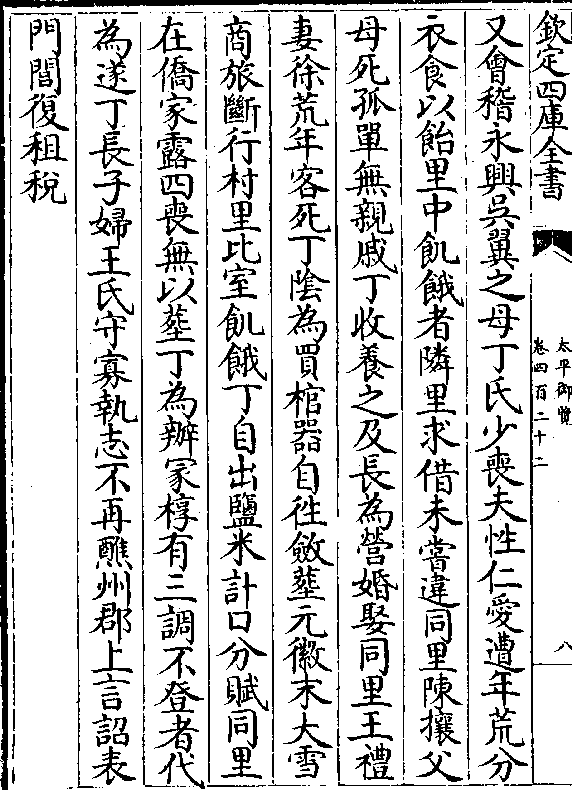 欽定四庫全書
太平御覽
卷四百二十二
八
又會稽永興吳翼之母丁氏少喪夫性仁愛遭年荒分
衣食以飴里中飢餓者隣里求借未嘗違同里陳攘父
母死孤單無親戚丁收養之及長為營婚娶同里王禮
妻徐荒年客死丁陰為買棺器自徃斂塟元徽末大雪
商旅斷行村里比室飢餓丁自出鹽米計口分賦同里
在僑家露四喪無以塟丁為辦冡椁有三調不登者代
為送丁長子婦王氏守寡執志不再醮州郡上言詔表
門閭復租稅